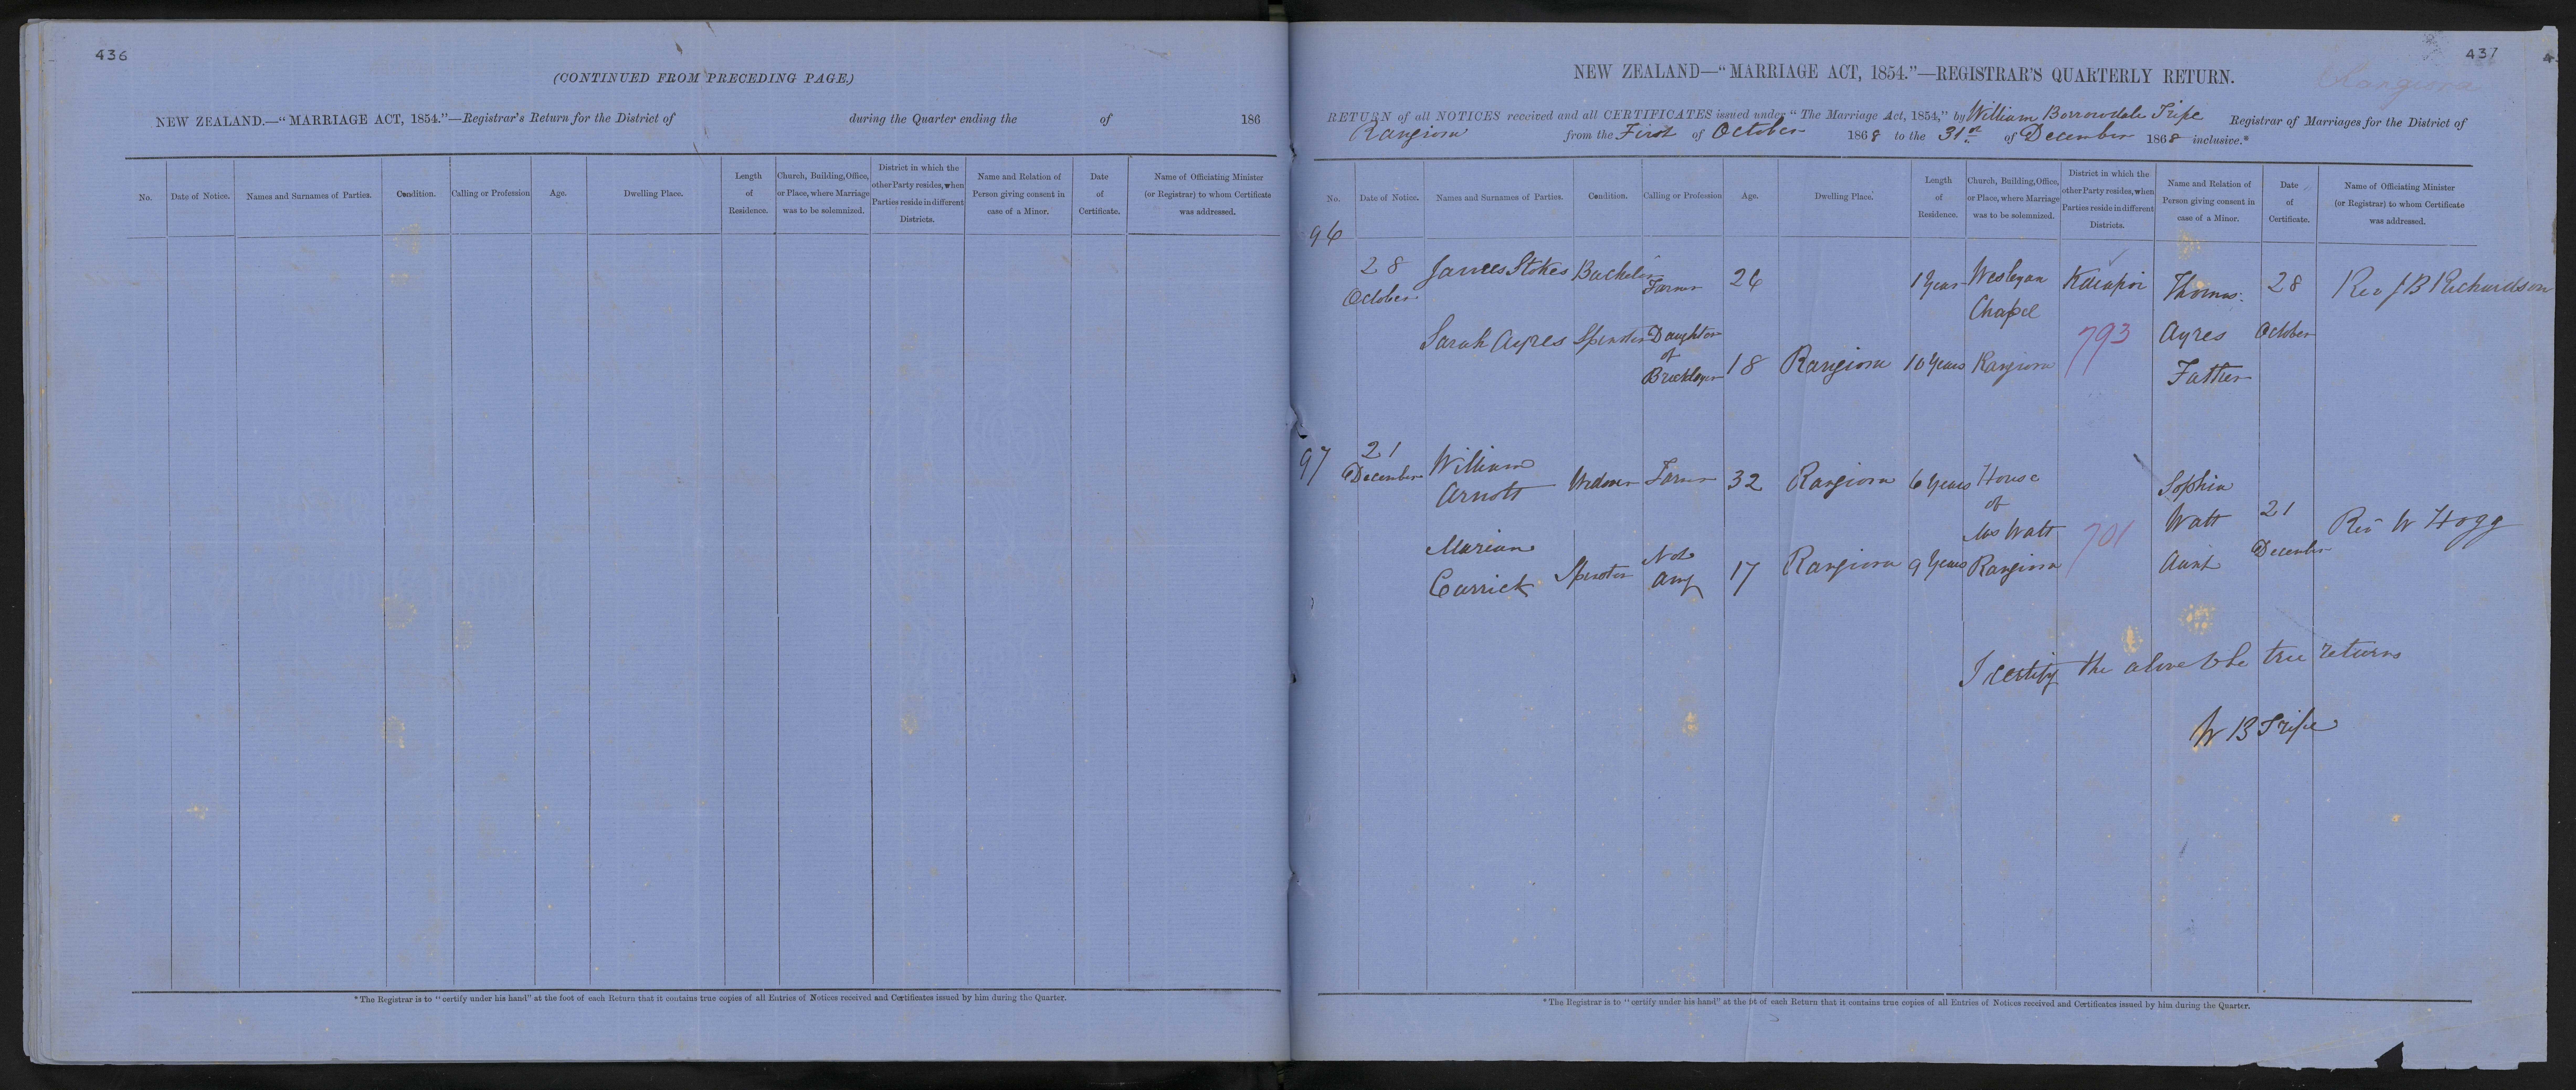 436
(CONTINUED FROM PRECEDING PAGE.)
NEW ZEALAND.—"MARRIAGE ACT, 1854."—Registrar's Return for the District of during the Quarter ending the of 186
No.
Date of Notice.
Names and Surnames of Parties.
Condition.
Calling or Profession
Age.
Dwelling Place.
Length
of
Residence.
Church, Building, Office,
or Place, where Marriage
was to be solemnized.
District in which the
other Party resides, when
Parties reside in different
Districts.
Name and Relation of
Person giving consent in
case of a Minor.
Date
of
Certificate.
Name of Officiating Minister
(or Registrar) to whom Certificate
was addressed.
*The Registrar is to "certify under his hand" at the foot of each Return that it contains true copies of all Entries of Notices received and Certificates issued by him during the Quarter.
437
Rangiora
NEW ZEALAND—"MARRIAGE ACT, 1854."—REGISTRAR'S QUARTERLY RETURN.
RETURN of all NOTICES received and all CERTIFICATES issued under "The Marriage Act, 1854," by William Borrowdale Tripe Registrar of Marriages for the District of
Rangiora from the First of October 1868 to the 31st of December 1868 inclusive.*
No.
Date of Notice.
Names and Surnames of Parties.
Condition.
Calling or Profession
Age.
Dwelling Place.
Length
of
Residence.
Church, Building, Office,
or Place, where Marriage
was to be solemnized.
District in which the
other Party resides, when
Parties reside in different
Districts.
Name and Relation of
Person giving consent in
case of a Minor.
Date
of
Certificate.
Name of Officiating Minister
(or Registrar) to whom Certificate
was addressed.
96
28
October
James Stokes
Bachelor
Farmer
26
1 Year
Wesleyan
Chapel
Rangiora
Kaiapoi
793
Thomas
Ayres
Father
28
October
Rev J B Richardson
Sarah Ayres
Spinster
Daughter
of
Bricklayer
18
Rangiora
10 Years
97
21
December
William
Arnott
Widower
Farmer
32
Rangiora
6 Years
House
of
Mrs Watt
Rangiora
701
Sophia
Watt
Aunt
21
December
Rev W Hogg
Marian
Carrick
Spinster
Not
any
17
Rangiora
9 Years
I certify the above to be true returns
W B Tripe
*The Registrar is to "certify under his hand" at the ot of each Return that it contains true copies of all Entries of Notices received and Certificates issued by him during the Quarter.